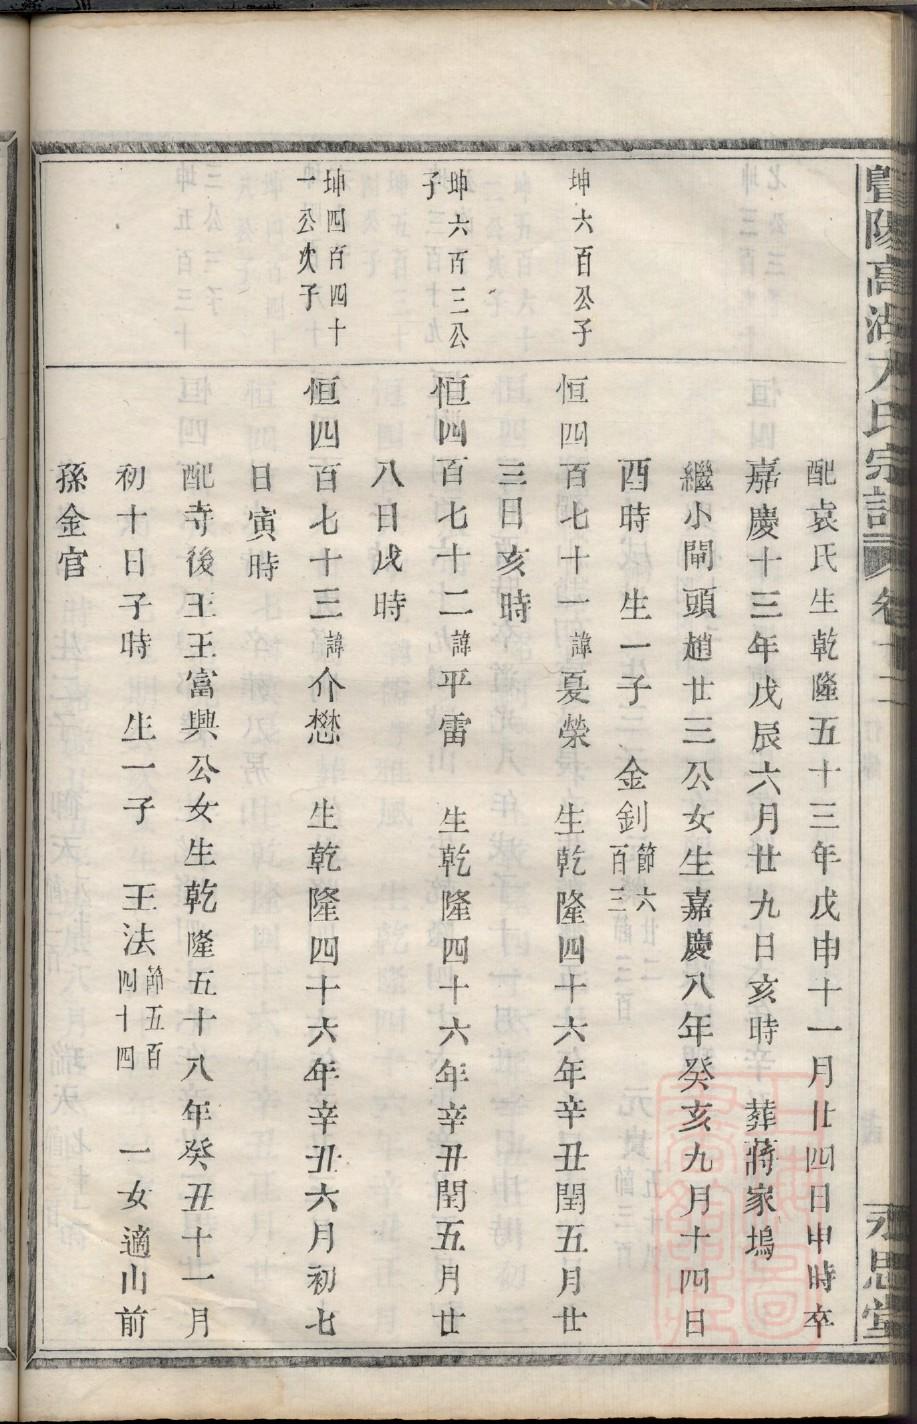 暨陽高湖方氏宗譜 卷十二
永思堂
配袁氏生乾隆五十三年戊申十一月廿四日申時卒
嘉慶十三年戊辰六月廿九日亥時 葬蔣家塢
繼小閘頭趙廿三公女生嘉慶八年癸亥九月十四日
酉時 生一子 金釗節六百三
坤六百公子
恒四百七十一諱夏榮 生乾隆四十六年辛丑閏五月廿
三日亥時
坤六百三公子
恒四百七十二諱平雷 生乾隆四十六年辛丑閏五月廿
八日戌時
坤四百四十一公次子
恒四百七十三諱介懋 生乾隆四十六年辛丑六月初七
日寅時
配寺後王王富興公女生乾隆五十八年癸丑十一月
初十日子時 生一子 王法節五百四十四 一女適山前
孫金官